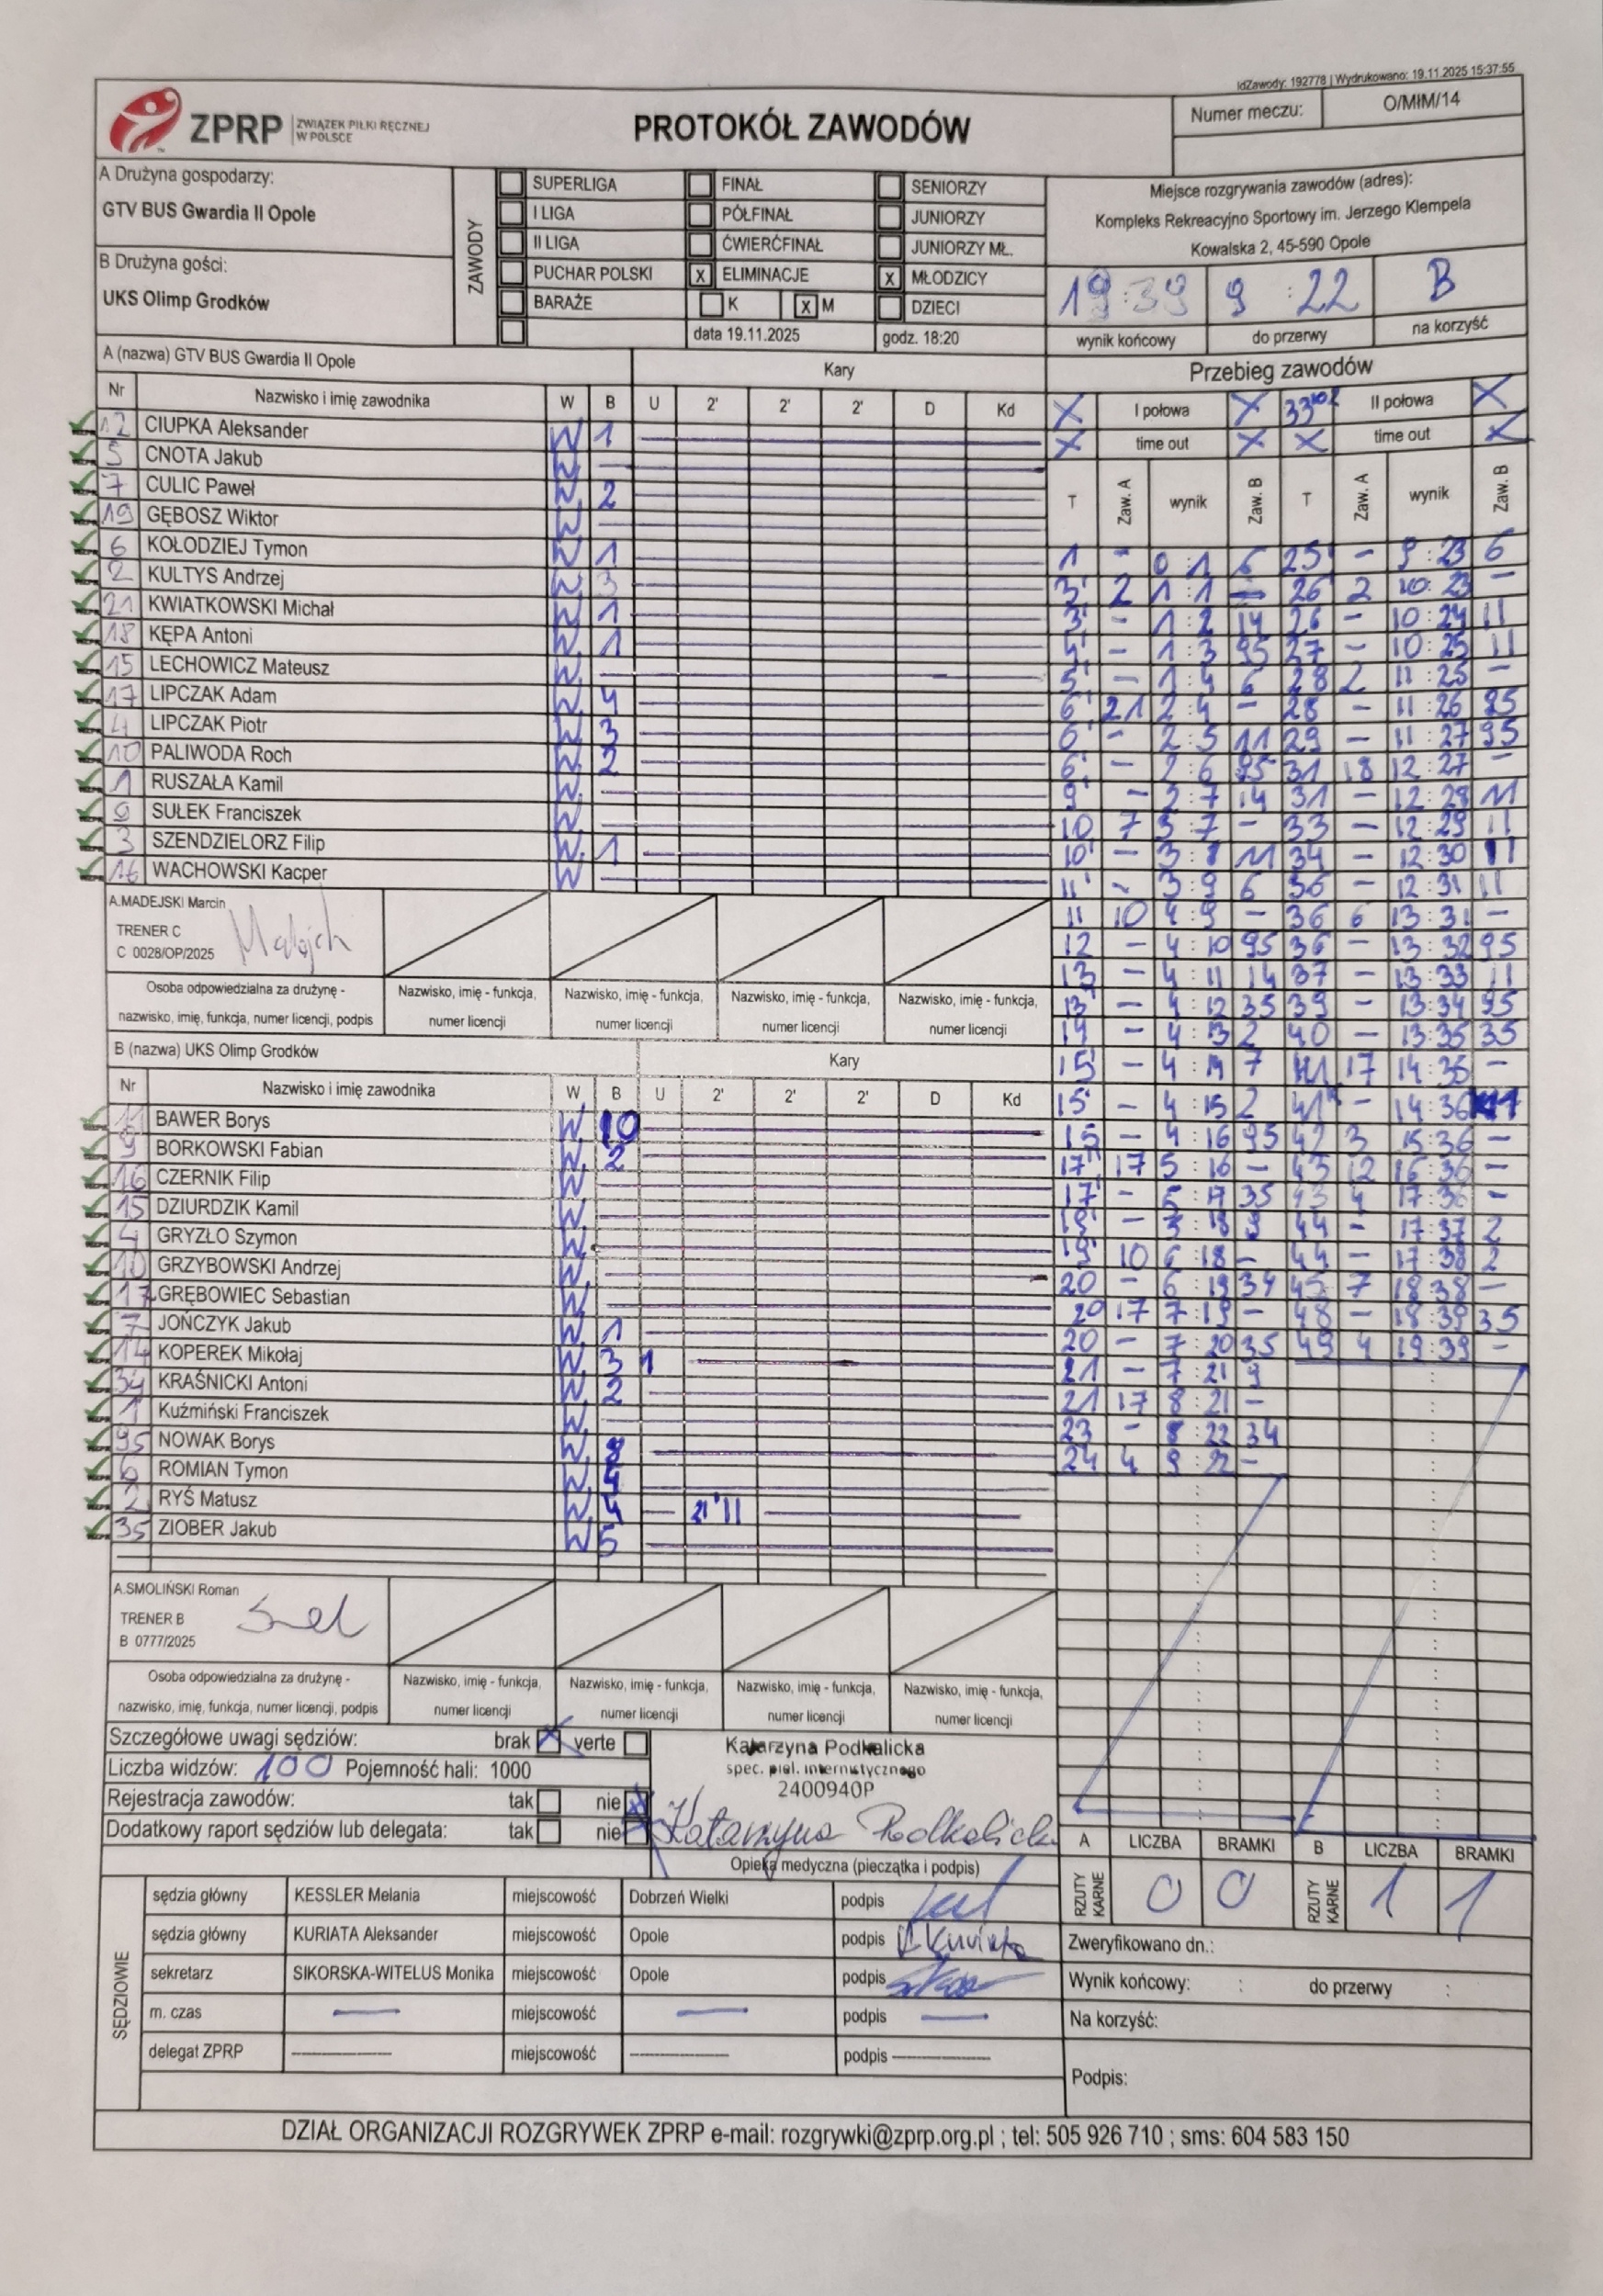 IdZawody: 192778 | Wydrukowano: 19.11.2025 15:37:55
ZPRP ZWIĄZEK PIŁKI RĘCZNEJ W POLSCE
PROTOKÓŁ ZAWODÓW
Numer meczu: O/MIM/14
A Drużyna gospodarzy:
GTV BUS Gwardia II Opole
B Drużyna gości:
UKS Olimp Grodków
ZAWODY
SUPERLIGA FINAŁ SENIORZY
I LIGA PÓŁFINAŁ JUNIORZY
II LIGA ĆWIERĆFINAŁ JUNIORZY MŁ.
PUCHAR POLSKI X ELIMINACJE X MŁODZICY
BARAŻE K X M DZIECI
data 19.11.2025 godz. 18:20
Miejsce rozgrywania zawodów (adres):
Kompleks Rekreacyjno Sportowy im. Jerzego Klempela
Kowalska 2, 45-590 Opole
19:39 9:22 B
wynik końcowy do przerwy na korzyść
A (nazwa) GTV BUS Gwardia II Opole Kary
Nr Nazwisko i imię zawodnika W B U 2' 2' 2' D Kd
12 CIUPKA Aleksander W 1
5 CNOTA Jakub W
7 CULIC Paweł W 2
19 GĘBOSZ Wiktor W
6 KOŁODZIEJ Tymon W 1
2 KULTYS Andrzej W 3
21 KWIATKOWSKI Michał W 1
18 KĘPA Antoni W 1
15 LECHOWICZ Mateusz W
17 LIPCZAK Adam W 4
4 LIPCZAK Piotr W 3
10 PALIWODA Roch W 2
1 RUSZAŁA Kamil W
SUŁEK Franciszek W
3 SZENDZIELORZ Filip W 1
16 WACHOWSKI Kacper W
A.MADEJSKI Marcin
TRENER C
C 0028/OP/2025
Osoba odpowiedzialna za drużynę - nazwisko, imię, funkcja, numer licencji, podpis
Nazwisko, imię - funkcja, numer licencji
Nazwisko, imię - funkcja, numer licencji
Nazwisko, imię - funkcja, numer licencji
Nazwisko, imię - funkcja, numer licencji
B (nazwa) UKS Olimp Grodków Kary
Nr Nazwisko i imię zawodnika W B U 2' 2' 2' D Kd
11 BAWER Borys W 10
9 BORKOWSKI Fabian W 2
16 CZERNIK Filip W
15 DZIURDZIK Kamil W
4 GRYZŁO Szymon W
10 GRZYBOWSKI Andrzej W
17 GRĘBOWIEC Sebastian W
7 JOŃCZYK Jakub W 1
14 KOPEREK Mikołaj W 3 1
34 KRAŚNICKI Antoni W 2
1 Kuźmiński Franciszek W
95 NOWAK Borys W 8
6 ROMIAN Tymon W 4
2 RYŚ Matusz W 4 — 21'11
35 ZIOBER Jakub W 5
A.SMOLIŃSKI Roman
TRENER B
B 0777/2025
Osoba odpowiedzialna za drużynę - nazwisko, imię, funkcja, numer licencji, podpis
Nazwisko, imię - funkcja, numer licencji
Nazwisko, imię - funkcja, numer licencji
Nazwisko, imię - funkcja, numer licencji
Nazwisko, imię - funkcja, numer licencji
Przebieg zawodów
X I połowa X 33 II połowa X
X time out X X time out X
T Zaw. A wynik Zaw. B T Zaw. A wynik Zaw. B
1 - 0:1 6 25' - 9:23 6
3' 2 1:1 - 26 2 10:23 -
3' - 1:2 14 26 - 10:24 11
5' - 1:3 95 27 - 10:25 11
5' - 1:4 6 28 2 11:25 -
6' 21 2:4 - 28 - 11:26 95
6' - 2:5 11 29 - 11:27 95
6' - 2:6 95 31 18 12:27 -
9' - 2:7 14 31 - 12:28 11
10 7 3:7 - 33 - 12:29 11
10' - 3:8 11 34 - 12:30 11
11' - 3:9 6 36 - 12:31 11
11 10 4:9 - 36 6 13:31 -
12 - 4:10 95 36 - 13:32 95
13 - 4:11 14 37 - 13:33 11
13' - 4:12 35 39 - 13:34 95
14 - 4:13 2 40 - 13:35 35
15' - 4:14 7 41 17 14:35 -
15' - 4:15 2 41 - 14:36
15 - 4:16 95 42 3 15:36 -
17' 17 5:16 - 43 12 16:36 -
17' - 5:17 35 43 4 17:36 -
- 5:18 9 44 - 17:37 2
19' 10 6:18 - 44 - 17:38 2
20 - 6:19 34 45 7 18:38 -
20 17 7:19 - 48 - 18:39 35
20 - 7:20 35 49 4 19:39 -
21 - 7:21 9
21 17 8:21 -
23 - 8:22 34
24 4 9:22 -
Szczegółowe uwagi sędziów: brak X verte
Liczba widzów: 100 Pojemność hali: 1000
Rejestracja zawodów: tak nie X
Dodatkowy raport sędziów lub delegata: tak nie X
Katarzyna Podkalicka
spec. piel. internistycznego
2400940P
Katarzyna Podkalicka
Opieka medyczna (pieczątka i podpis)
A LICZBA BRAMKI B LICZBA BRAMKI
RZUTY KARNE 0 0 RZUTY KARNE 1 1
SĘDZIOWIE
sędzia główny KESSLER Melania miejscowość Dobrzeń Wielki podpis
sędzia główny KURIATA Aleksander miejscowość Opole podpis
sekretarz SIKORSKA-WITELUS Monika miejscowość Opole podpis
m. czas — miejscowość — podpis —
delegat ZPRP — miejscowość — podpis —
Zweryfikowano dn.:
Wynik końcowy: : do przerwy :
Na korzyść:
Podpis:
DZIAŁ ORGANIZACJI ROZGRYWEK ZPRP e-mail: rozgrywki@zprp.org.pl ; tel: 505 926 710 ; sms: 604 583 150